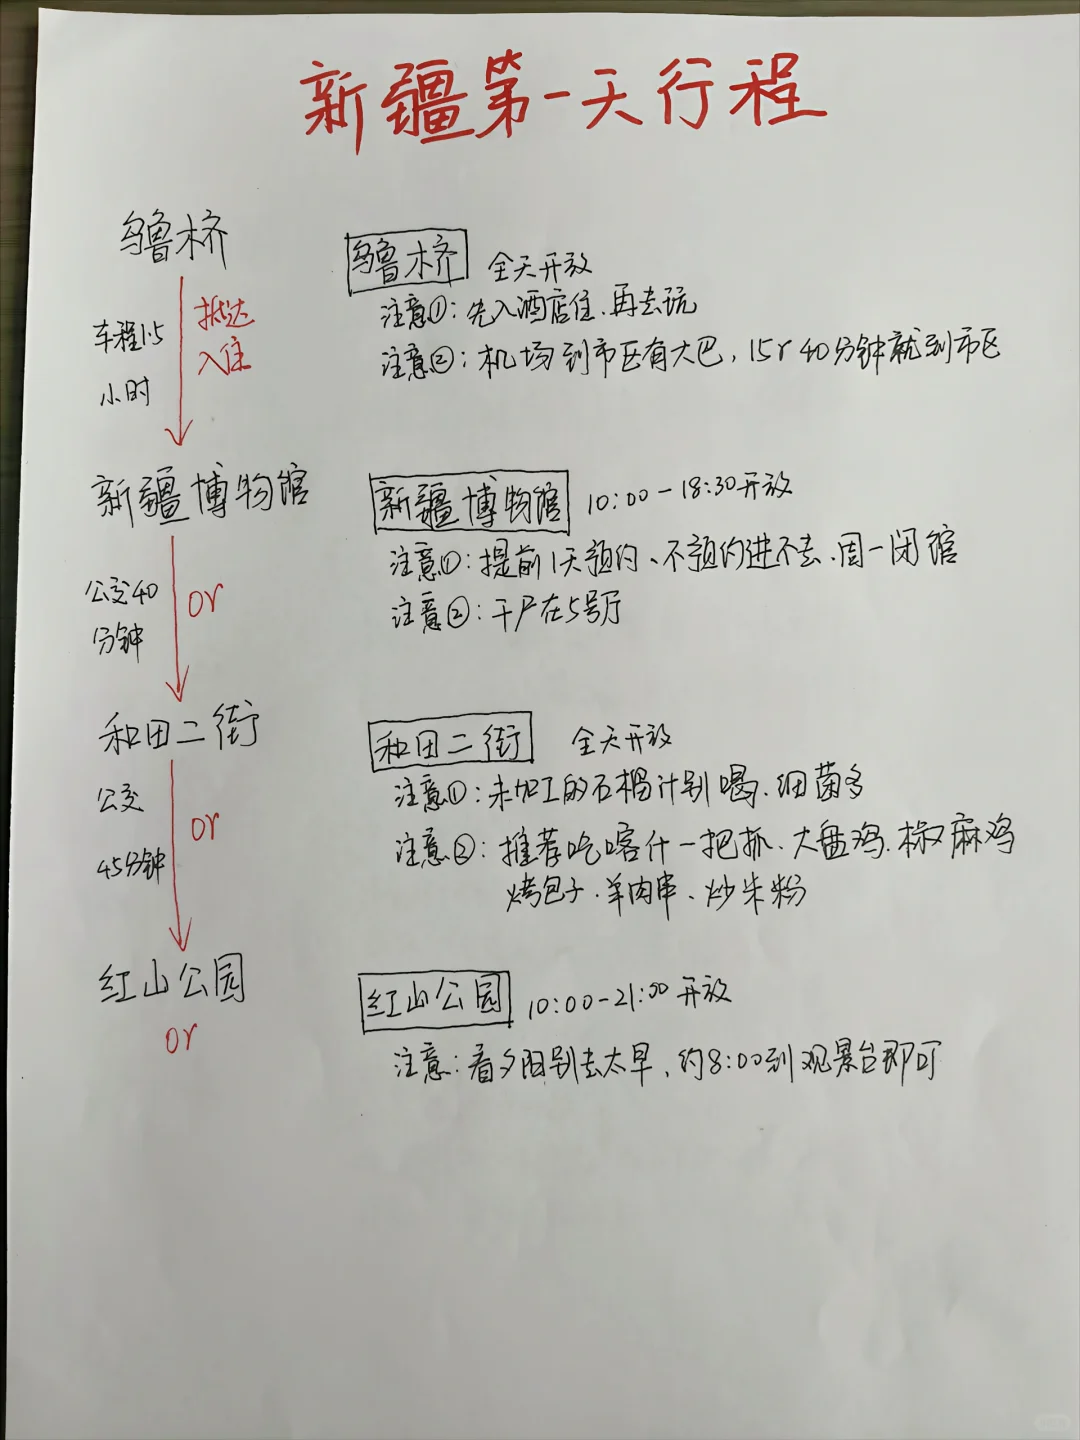 新疆第一天行程
乌鲁木齐
车程1.5
小时
抵达
入住
乌鲁木齐 全天开放
注意①：先入酒店住、再去玩
注意②：机场到市区有大巴，15r 40分钟就到市区
新疆博物馆
公交40
分钟
or
新疆博物馆 10:00-18:30开放
注意①：提前1天预约、不预约进不去、周一闭馆
注意②：干尸在5号厅
和田二街
公交
45分钟
or
和田二街 全天开放
注意①：未加工的石榴汁别喝、细菌多
注意②：推荐吃喀什一把抓、大盘鸡、椒麻鸡
烤包子、羊肉串、炒米粉
红山公园
or
红山公园 10:00-21:00开放
注意：看夕阳别去太早，约8:00到观景台即可